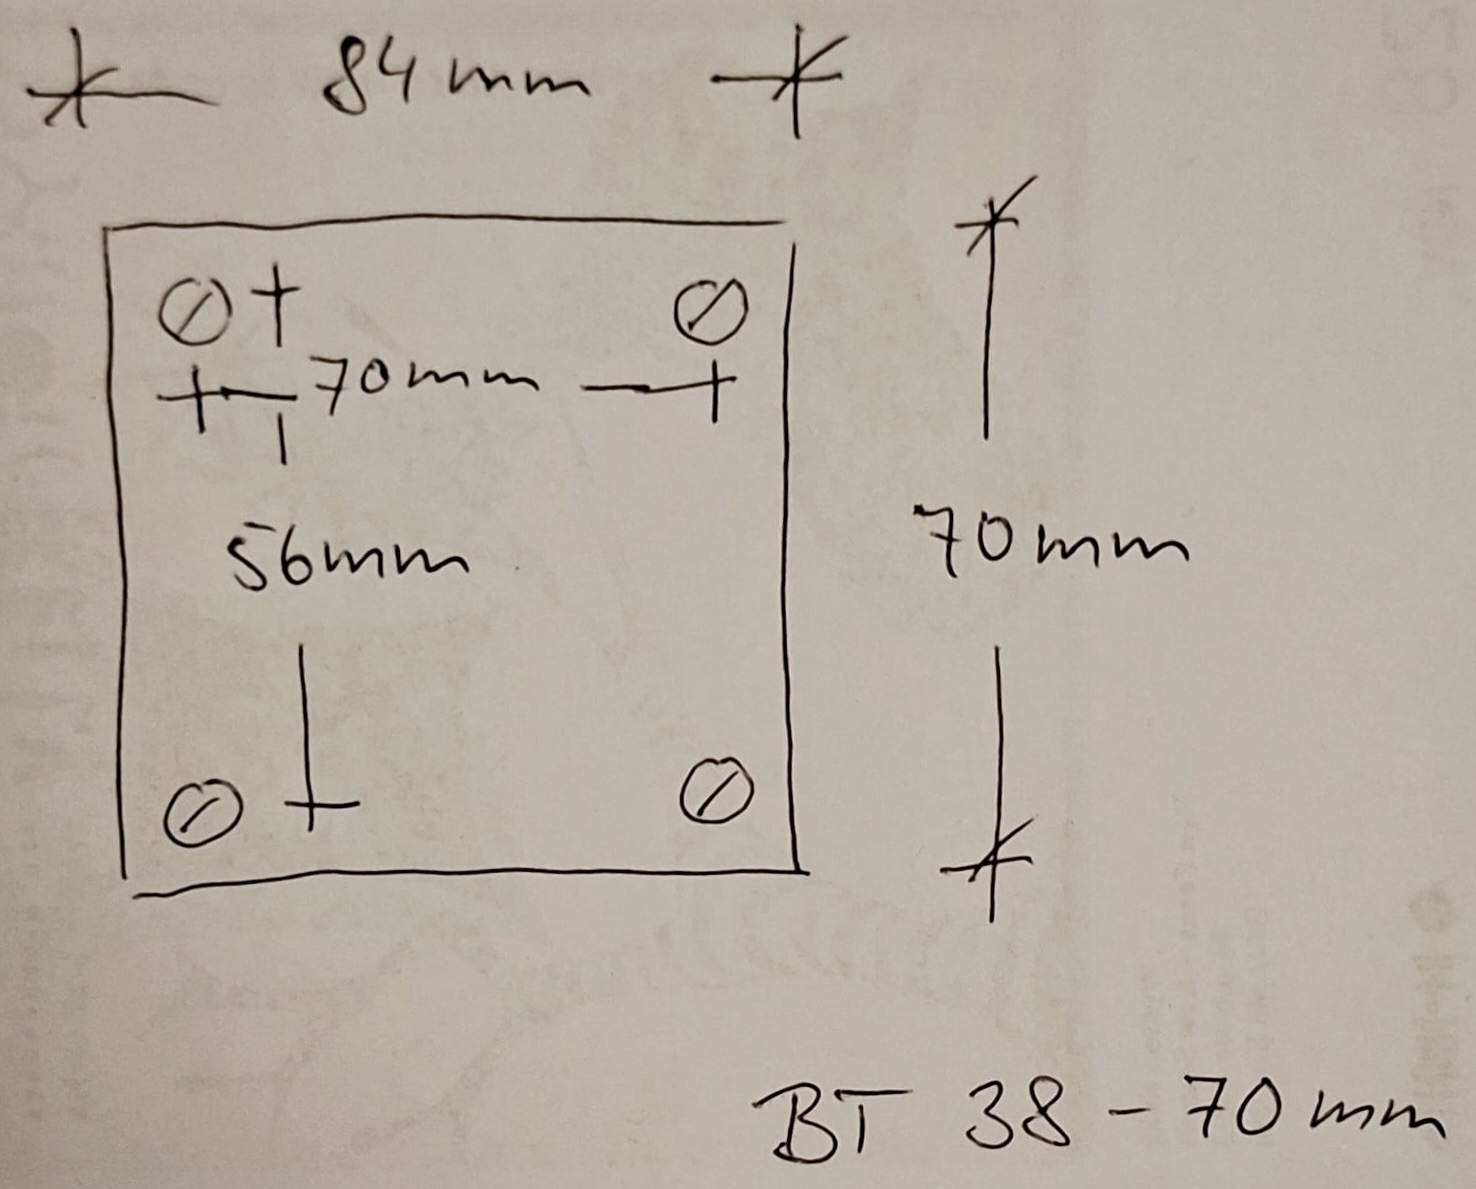 84 mm
70mm
56mm
70mm
BT 38 - 70 mm